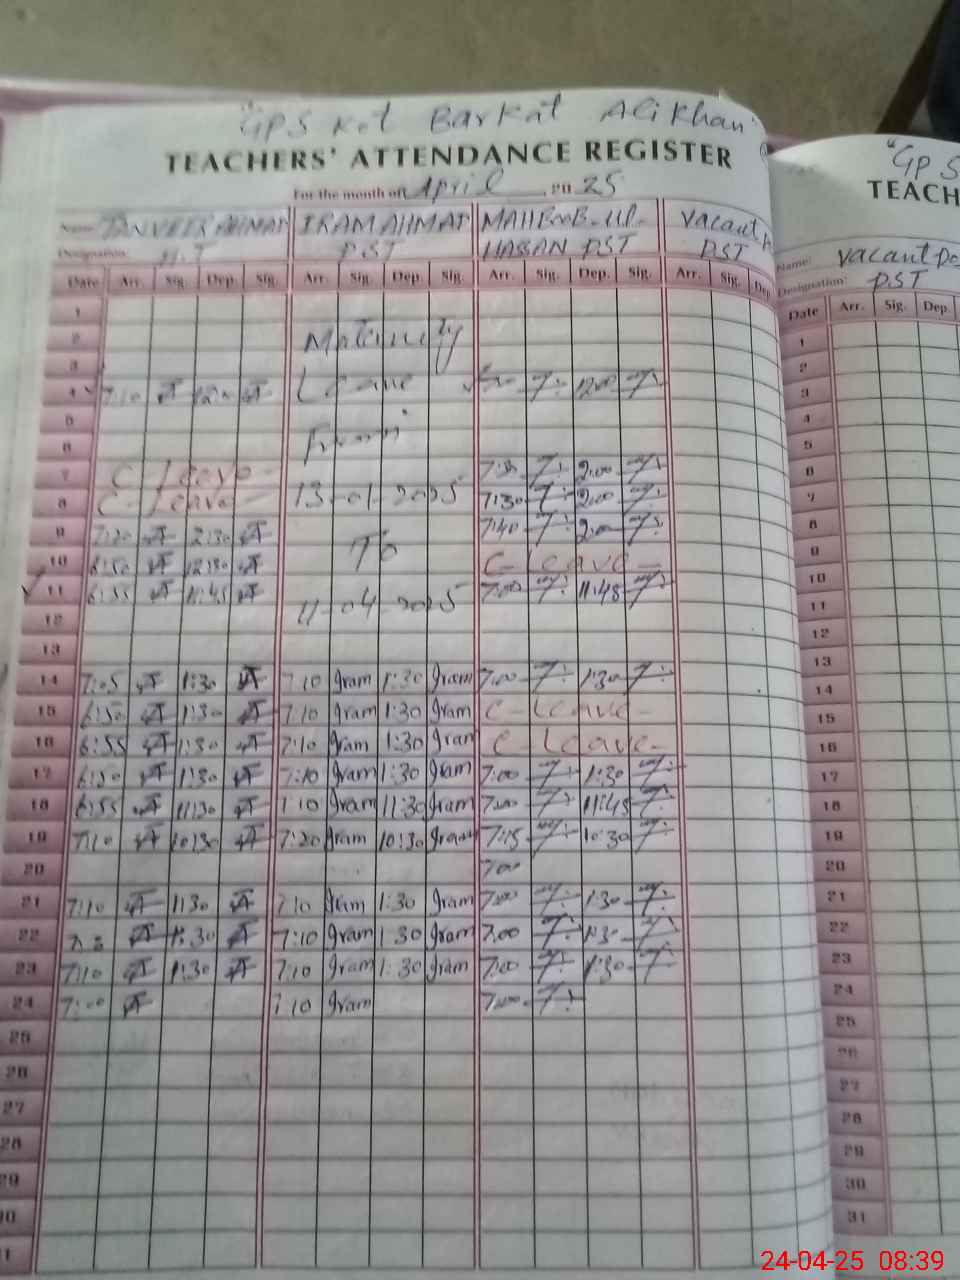 "GPS Kot Barkat Ali Khan"
TEACHERS' ATTENDANCE REGISTER
For the month of April 2025
Name: TANVEER AHMAD IRAM AHMAD MAHBOOB-UL- Vacant
Designation: H.T P.ST HASSAN P.ST P.ST
Date Arr. Sig. Dep. Sig. Arr. Sig. Dep. Sig. Arr. Sig. Dep. Sig. Arr. Sig. Dep
1
2 Maternity
3
4 7:10 Leave 12:00
5
6 From
7 C-Leave- 7:30 2:00
8 C-Leave- 13-01-2025 7:30 2:00
9 7:20 2:30 7:40 2:00
10 6:50 12:30 To C-Leave-
11 6:55 11:45 7:00 11:45
12 11-04-2025
13
14 7:05 1:30 7:10 Iram 1:30 Iram 7:00 1:30
15 6:50 1:30 7:10 Iram 1:30 Iram C-Leave-
16 6:55 1:30 7:10 Iram 1:30 Iram C-Leave-
17 6:50 1:30 7:10 Iram 1:30 Iram 7:00 1:30
18 6:55 11:30 7:10 Iram 11:30 Iram 7:00 11:45
19 7:10 10:30 7:20 Iram 10:30 Iram 7:15 10:30
20 7:00
21 7:10 1:30 7:10 Iram 1:30 Iram 7:00 1:30
22 1:30 7:10 Iram 1:30 Iram 7:00 1:30
23 7:10 1:30 7:10 Iram 1:30 Iram 7:00 1:30
24 7:00 7:10 Iram 7:00
25
26
27
28
29
30
31
"GPS
TEACH
Name: Vacant Po
Designation: P.ST
Date Arr. Sig. Dep.
1
2
3
4
5
6
7
8
9
10
11
12
13
14
15
16
17
18
19
20
21
22
23
24
25
26
27
28
29
30
31
24-04-25 08:39